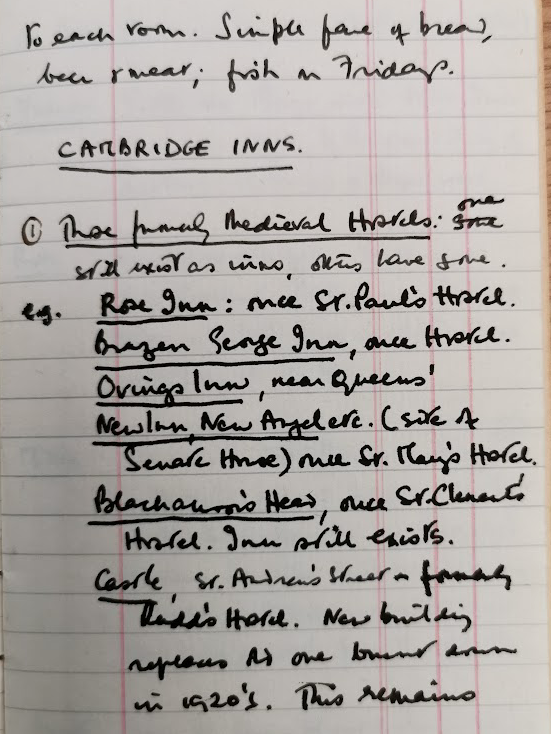 to each room. Simple fare of bread,
beer & meat; fish on Fridays.
CAMBRIDGE INNS.
① Those formerly Medieval Hostels: one some
still exist as inns, others have gone.
e.g. Rose Inn: once St. Paul's Hostel.
Brazen George Inn, once Hostel.
Ovings Inn, near Queens'
New Inn, New Angel etc. (site of
Senate House) once St. Mary's Hostel.
Blackamoor's Head, once St. Clement's
Hostel. Inn still exists.
Castle, St. Andrew's Street – formerly
Rudd's Hostel. New building
replaces old one burnt down
in 1920's. This remains